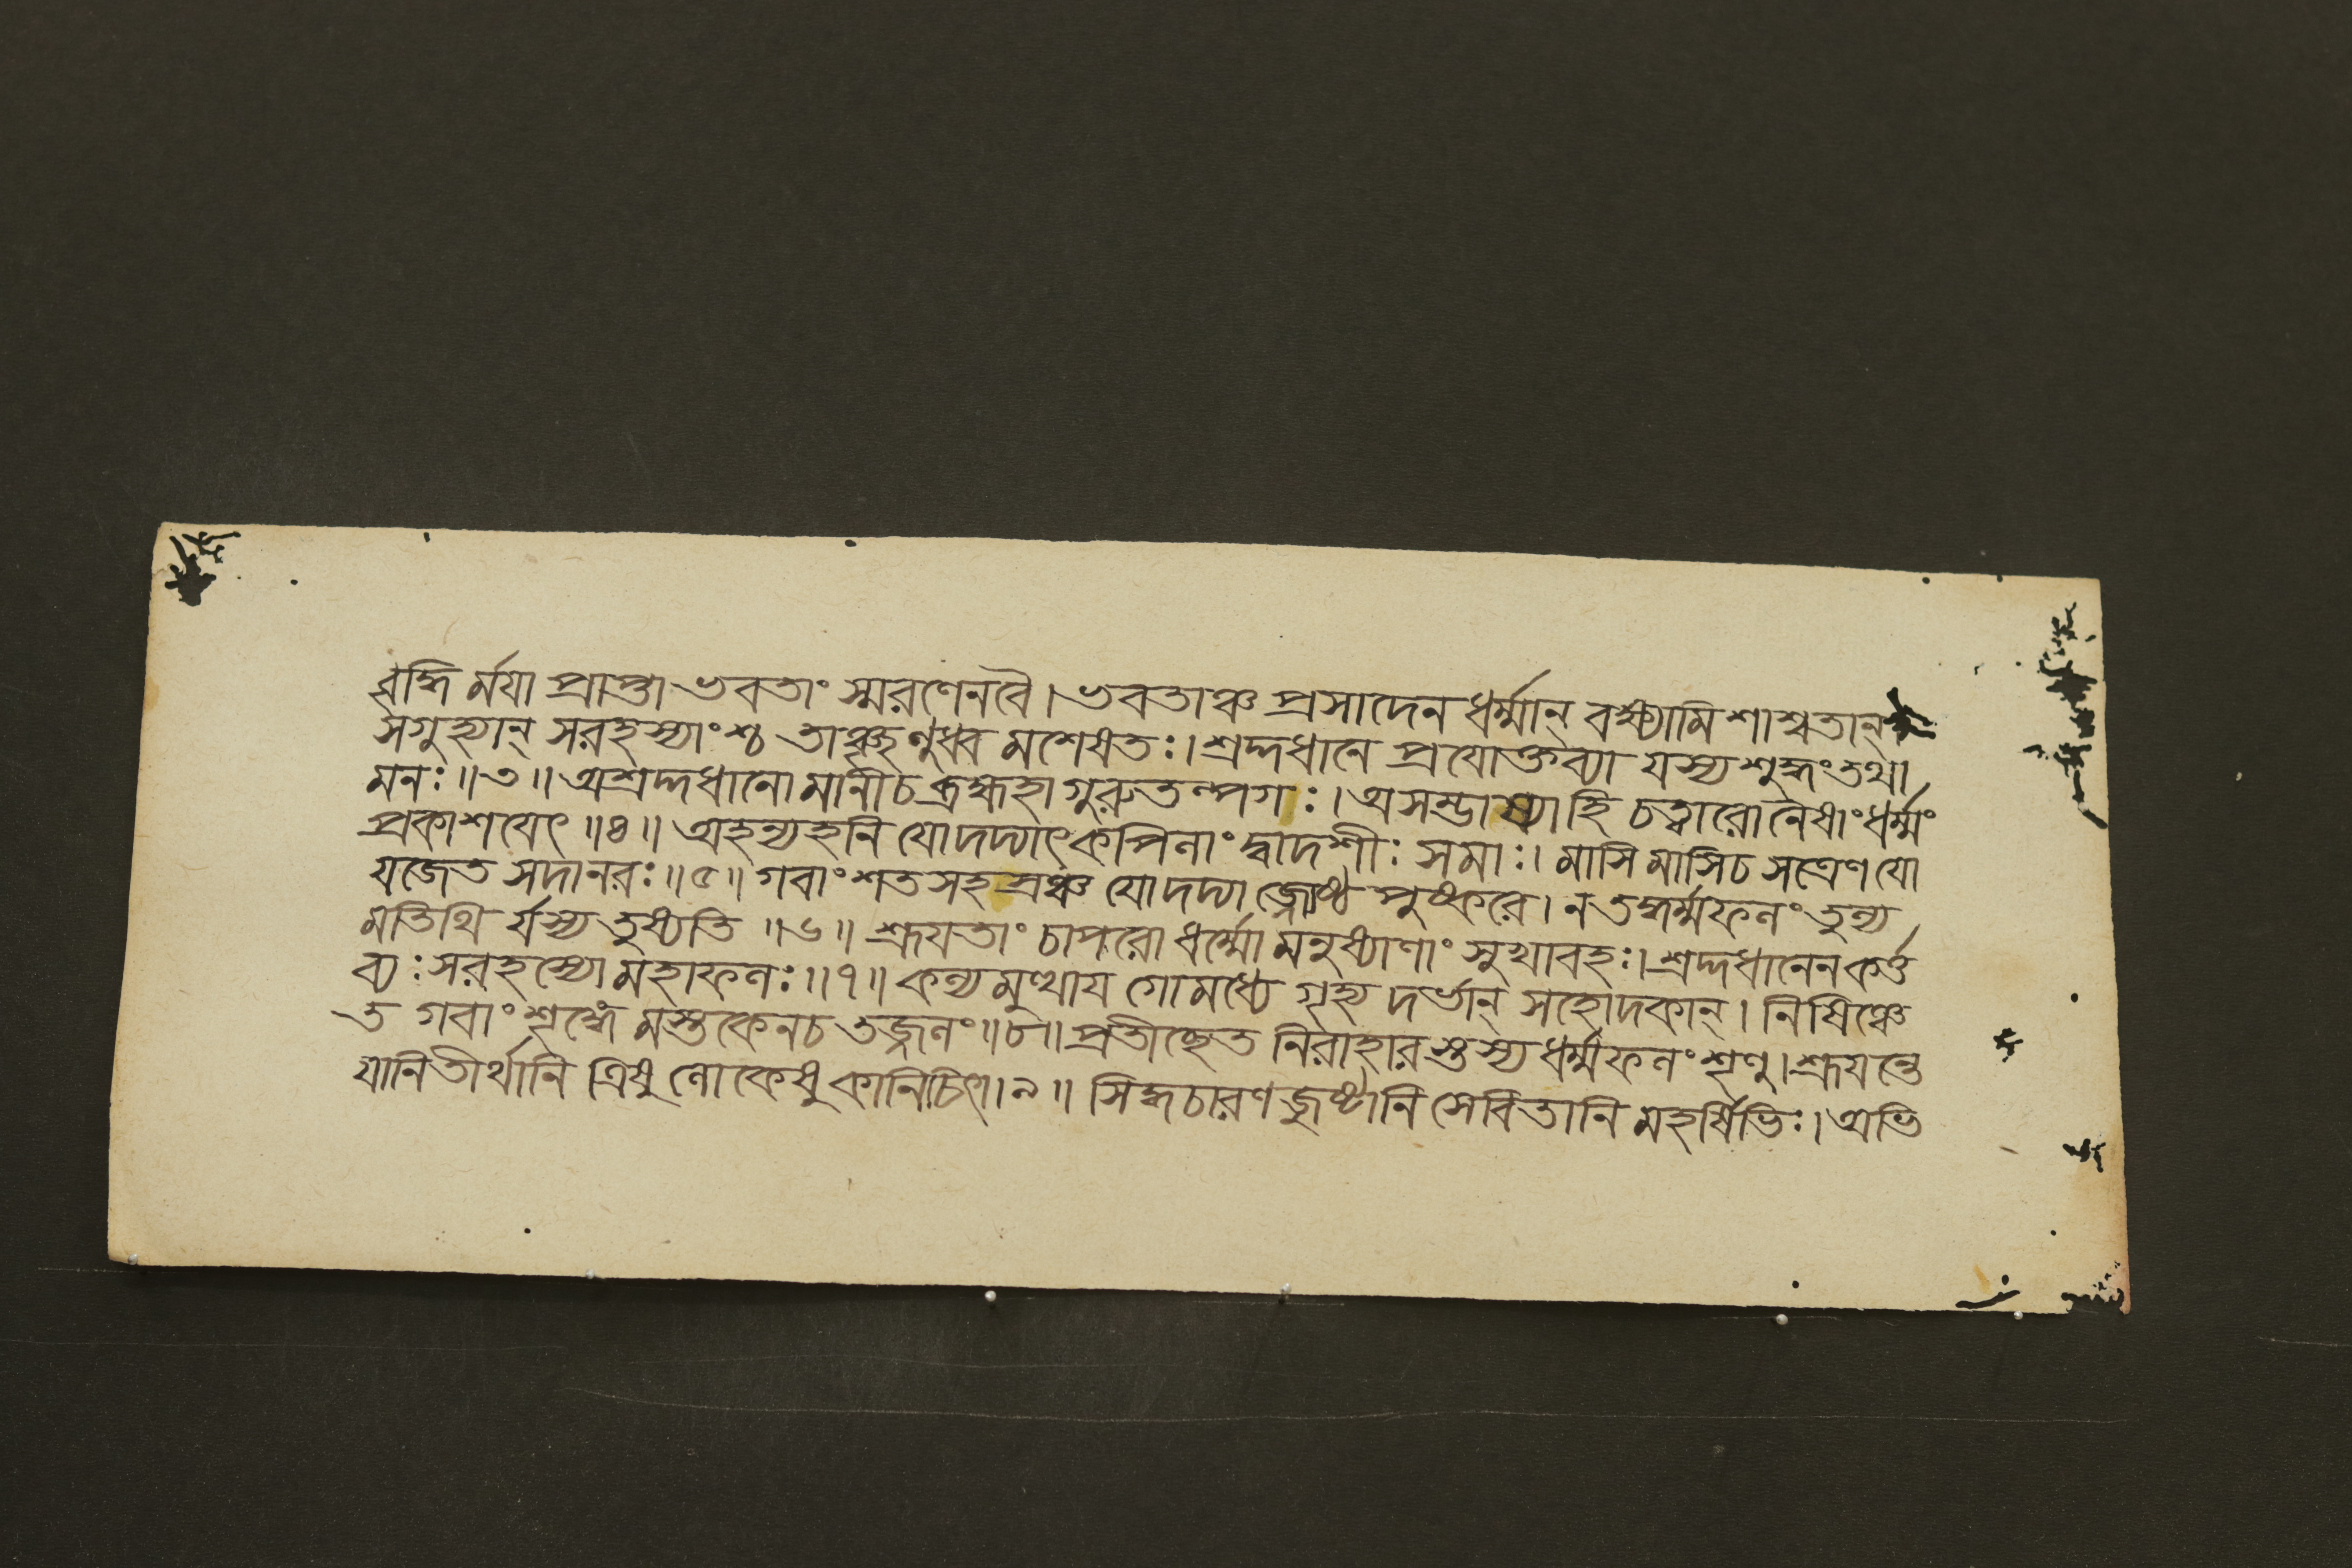 বৃদ্ধি র্ময়া প্রাপ্তা ভবতাং স্মরণেনবৈ। ভবতাঞ্চ প্রসাদেন ধর্ম্মান্ বক্ষ্যামি শাশ্বতান্
সগুহ্যান্ সরহস্যাংশ্চ তাঞ্ছৃণুধ্ব মশেষতঃ। শ্রদ্দধানে প্রযোক্তব্যা যস্য শুদ্ধং তথা
মনঃ॥৩॥ অশ্রদ্দধানো মানীচ ব্রহ্মহা গুরুতল্পগঃ। অসম্ভাষ্যাহি চত্বারো নৈষাং ধর্ম্মং
প্রকাশয়েৎ ॥৪॥ অহন্যহনি যোদদ্যাৎ কপিলাং দ্বাদশীঃ সমাঃ। মাসি মাসিচ সত্রেণ যো
যজেত সদানরঃ॥৫॥ গবাং শতসহস্রঞ্চ যোদদ্যা জ্জ্যেষ্ঠ পুষ্করে। ন তদ্ধর্ম্মফলং তুল্য
মতিথি র্যস্য তুষ্যতি ॥৬॥ শ্রূয়তাং চাপরো ধর্ম্মো মনুষ্যাণাং সুখাবহঃ। শ্রদ্দধানেন কর্ত্ত
ব্যঃ সরহস্যো মহাফলঃ॥৭॥ কল্য মুত্থায় গোমধ্যে গৃহ্য দর্ভান্ সহোদকান্। নিষিঞ্চে
ত গবাং শৃঙ্গে মস্তকেনচ তজ্জলং॥৮॥ প্রতীচ্ছেত নিরাহার স্তস্য ধর্ম্মফলং শৃণু। শ্রূয়ন্তে
যানি তীর্থানি ত্রিষু লোকেষু কানিচিৎ॥৯॥ সিদ্ধচারণ জুষ্টানি সেবিতানি মহর্ষিভিঃ। অভি